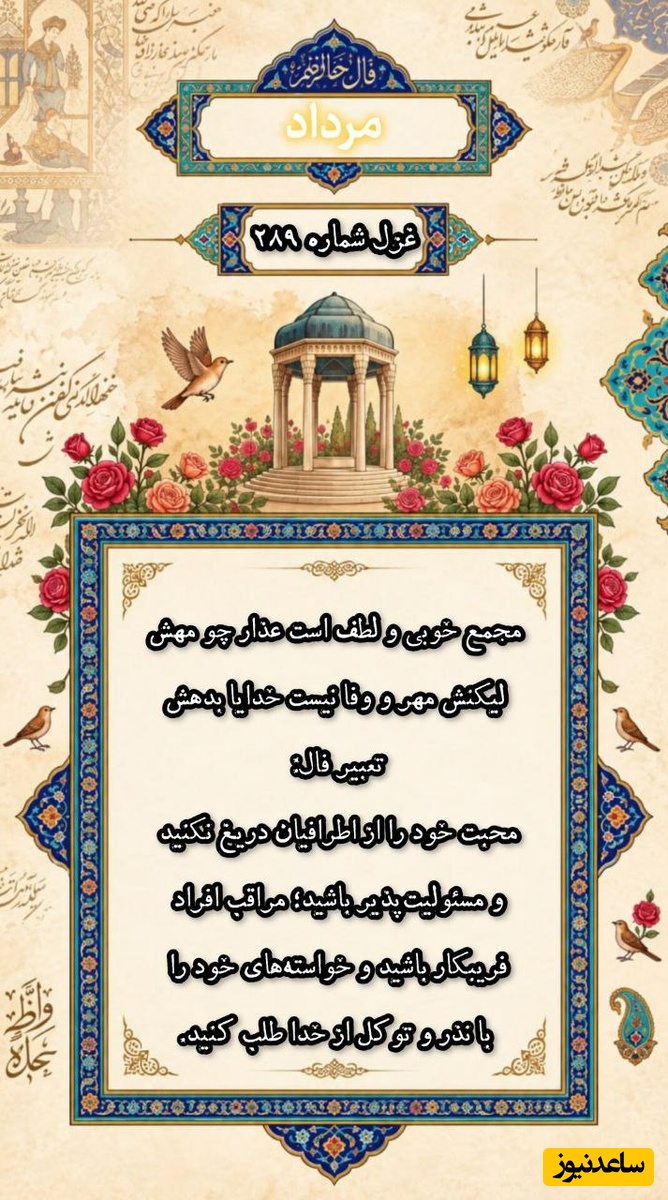 مرداد
غزل شماره ۲۸۹
مجمع خوبی و لطف است عذار چو مهش
لیکنش مهر و وفا نیست خدایا بدهش
تعبیر فال:
محبت خود را از اطرافیان دریغ نکنید
و مسئولیت‌پذیر باشید؛ مراقب افراد
فریبکار باشید و خواسته‌های خود را
با نذر و توکل از خدا طلب کنید.
ساعدنیوز